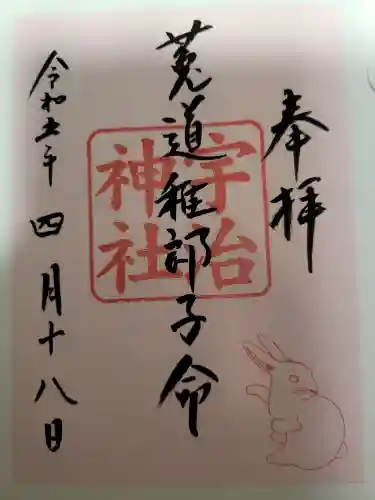 奉拝
菟道稚郎子命
宇治
神社
令和五年
四月十八日